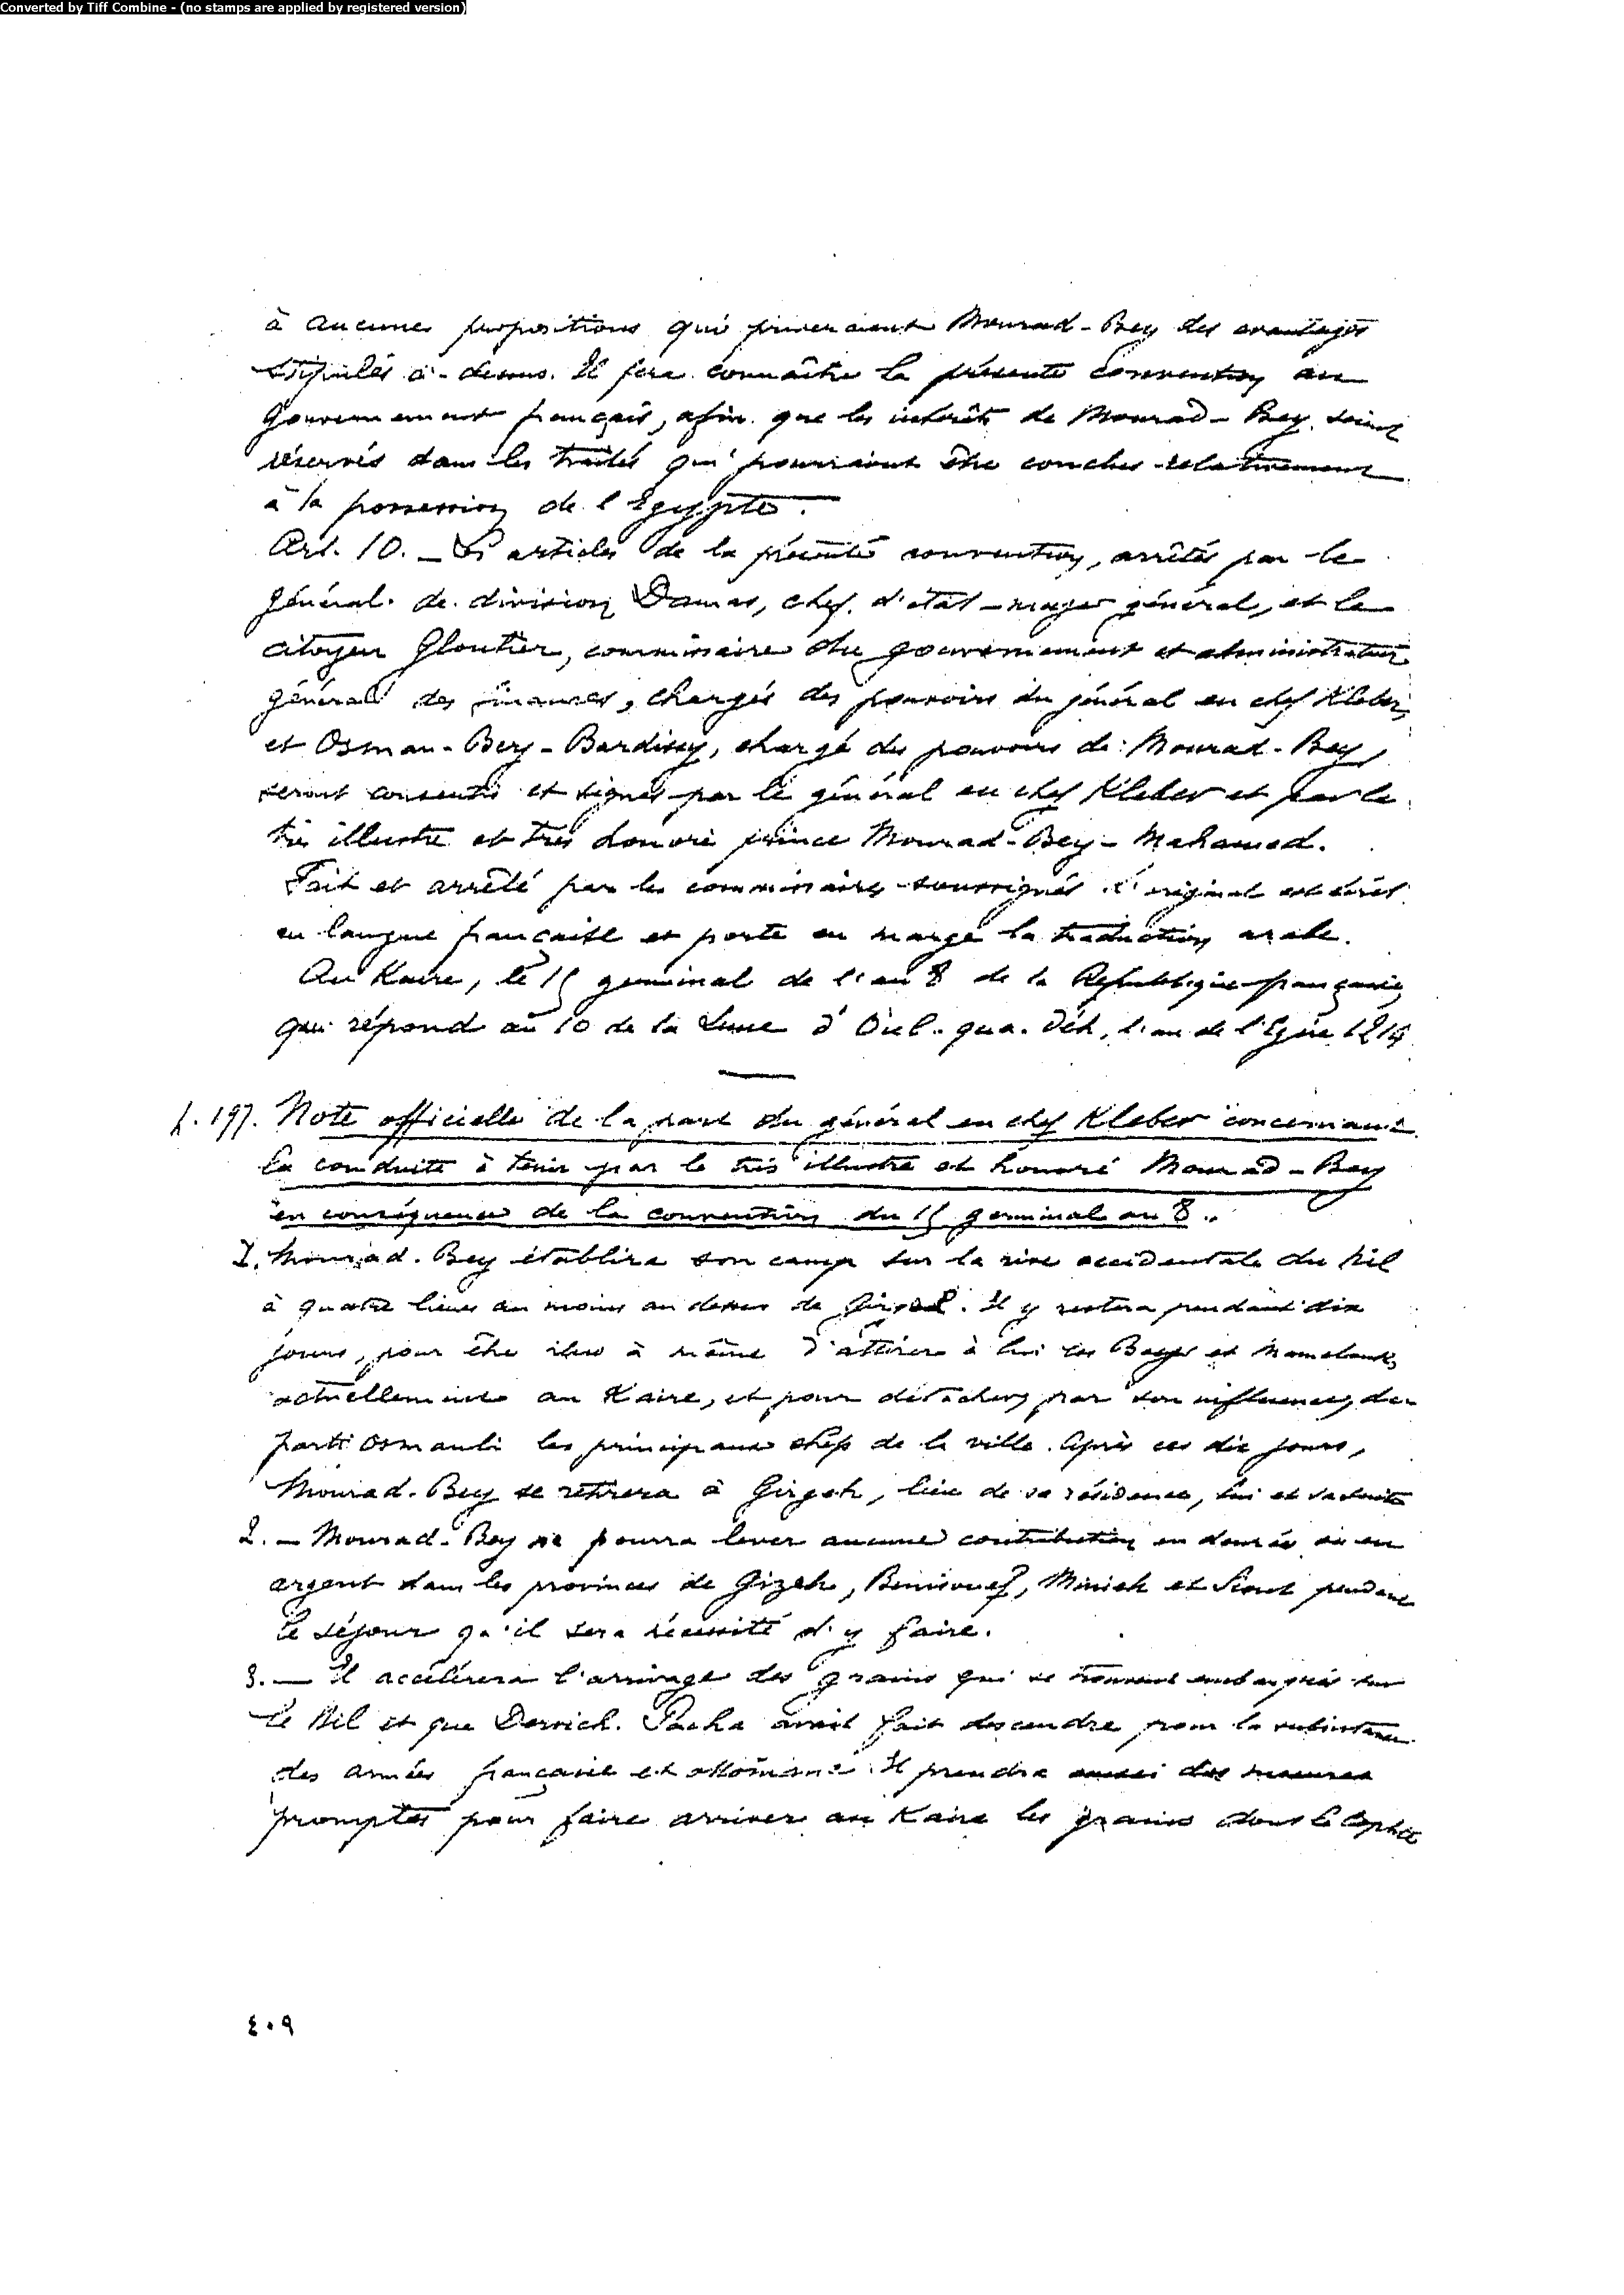 Converted by Tiff Combine - (no stamps are applied by registered version)
à aucunes propositions qui priveraient Mourad-Bey des avantages
stipulés ci-dessus. Il fera connaître la présente convention au
Gouvernement français, afin que les intérêts de Mourad-Bey soient
réservés dans les traités qui pourraient être conclus relativement
à la possession de l'Egypte.
Art. 10. — Les articles de la présente convention, arrêtés par le
général de division Damas, chef d'état-major général, et le
citoyen Gloutier, commissaire du gouvernement et administrateur
général des finances, chargés des pouvoirs du général en chef Kleber,
et Osman-Bey-Bardissy, chargé des pouvoirs de Mourad-Bey,
seront consentis et signés par le général en chef Kleber et par le
très illustre et très honoré prince Mourad-Bey-Mohamed.
Fait et arrêté par les commissaires soussignés. L'original est
en langue française et porte en marge la traduction arabe.
Au Kaire, le 15 germinal de l'an 8 de la République française,
qui répond au 10 de la Lune d' l'an de l'Egire 1214
f. 197. Note officielle de la part du général en chef Kleber concernant
la conduite à tenir par le très illustre et honoré Mourad-Bey
en conséquence de la convention du 15 germinal an 8.
1. Mourad-Bey établira son camp sur la rive occidentale du Nil
à quatre lieues au moins au dessus de Il y restera pendant dix
jours, pour être à même d'attirer à lui les Beys et Mamelouks
actuellement au Kaire, et pour détacher, par son influence, du
parti Osmanli les principaux chefs de la ville. Après ces dix jours,
Mourad-Bey se retirera à Girgeh, lieu de sa résidence, lui et sa suite
2. — Mourad-Bey ne pourra lever aucune contribution en denrées ou en
argent dans les provinces de Gizeh, Benisouef, Minieh et Siout pendant
le séjour qu'il sera nécessité d'y faire.
3. — Il accélérera l'arrivage des grains qui se trouvent embarqués sur
le Nil et que Dervich-Pacha avait fait descendre pour la subsistance
des armées française et ottomane. Il prendra aussi des mesures
promptes pour faire arriver au Kaire les grains dont le Cophte
٤٠٩